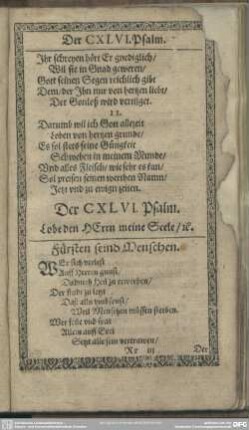 Der CXLVI. Psalm.
Ihr schreyen hört Er gnediglich/
Wil sie in Gnad geweren/
Gott seinen Segen reichlich gibt
Dem/der Ihn nur von hertzen liebt/
Der Gottloß wird vertilget.
11.
Darumb wil ich Gott allzeit
Loben von hertzen grunde/
Es sol stets seine Gütigkeit
Schweben in meinem Munde/
Vnd alles Fleisch/wie sehr es kan/
Sol preisen seinen werthen Namn/
Jetzt vnd zu ewign zeiten.
Der CXLVI. Psalm.
Lobe den HErrn meine Seele/ꝛc.
Fürsten seind Menschen.
WEr sich verlest
Auff Herren gunst/
Dadurch Heil zu erwerben/
Der findt zu letzt
Daß alls vmbsonst/
Weil Menschen müssen sterben.
Wer
Allein auff Gott
Setzt alle sein vertrawen/
Rr iij
Der